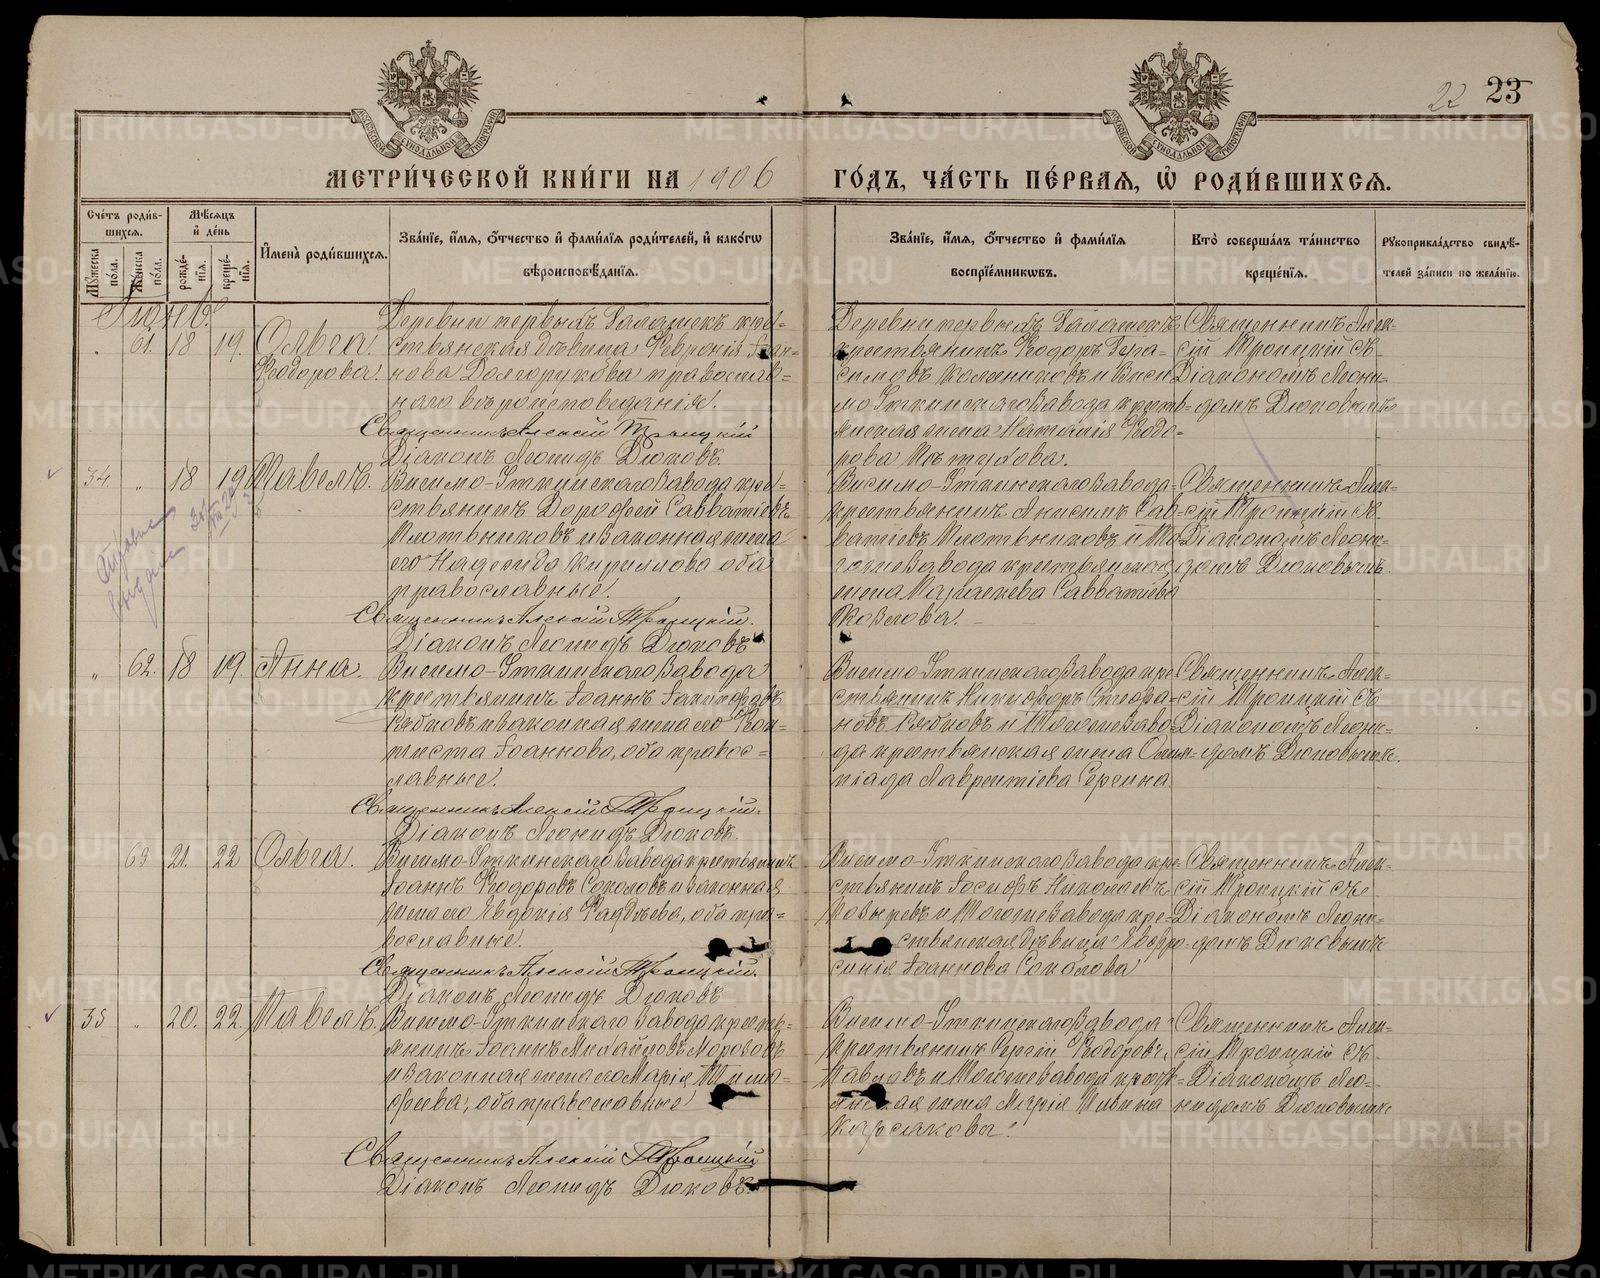 22 23
МЕТРИ́ЧЕСКОЙ КНИ́ГИ НА 1906 ГО́ДЪ, ЧА́СТЬ ПЕ́РВАЯ, Ѡ҆ РОДИ́ВШИХСЯ.
Сче́тъ роди́в-
шихся.
Мꙋ́жеска по́ла.
Же́нска по́ла.
Мѣ́сяцъ и҆ де́нь
рожде́-
нїя.
креще́-
нїя.
И҆мена̀ роди́вшихся.
Зва́нїе, и҆́мя, ѻ҆́тчество и҆ фами́лїя роди́телей, и҆ како́гѡ
вѣроисповѣ́данїя.
Зва́нїе, и҆́мя, ѻ҆́тчество и҆ фами́лїя
воспрїе́мникѡвъ.
Кто̀ соверша́лъ та́инство
креще́нїя.
Рꙋкоприкла́дство свидѣ́-
телей за́писи по жела́нїю.
Іюнь.
61. 18 19. Ольга.
Ѳеодорова.
Деревни первыхъ Галашекъ кре-
стьянская дѣвица Ѳевронія Іоан-
нова Долгорукова православ-
наго вѣроисповеданія.
Священникъ Алексій Троицкій
Діаконъ Леонидъ Дюковъ.
Деревни первыхъ Галашекъ
крестьянинъ Ѳеодоръ Гера-
симовъ Колесниковъ и Виси
мо-Уткинскаго завода кресть-
янская жена Наталія Ѳеодо-
рова
Священникъ Алек-
сій Троицкій съ
Діакономъ Леони-
домъ Дюковымъ
34. „ 18 19 Павелъ.
Висимо-Уткинскаго завода кре-
стьянинъ Дороѳей Савватіевъ
Плотниковъ и законная жена
его Надежда Кириллова оба
православные.
Священникъ Алексій Троицкій.
Діаконъ Леонидъ Дюковъ
Висимо-Уткинскаго завода
крестьянинъ Анисимъ Сав-
ватіевъ Плотниковъ и То-
гоже завода крестьянская
жена Савватіева
Козлова.
Священникъ Алек-
сій Троицкій съ
Діакономъ Леони-
домъ Дюковымъ.
„ 62. 18 19. Анна.
Висимо-Уткинскаго завода
крестьянинъ Іоаннъ
и законная жена его Ѳеок-
тиста Іоаннова, оба правос-
лавные.
Священникъ Алексій Троицкій.
Діаконъ Леонидъ Дюковъ.
Висимо-Уткинскаго завода кре
стьянинъ Никифоръ
и Тогоже заво-
да крестьянская жена Олим-
піада Лаврентіева
Священникъ Алек-
сій Троицкій съ
Діакономъ Леони-
домъ Дюковымъ.
63 21. 22 Ольга.
Висимо-Уткинскаго завода крестьянинъ
Іоаннъ Ѳеодоровъ Соколовъ и законная
жена его Евдокія Ѳаддѣева, оба пра-
вославные.
Священникъ Алексій Троицкій.
Діаконъ Леонидъ Дюковъ
Висимо-Уткинскаго завода кре-
стьянинъ Іосифъ Николаевъ
и Тогоже завода кре-
стьянская дѣвица Евфро-
синія Іоаннова Соколова
Священникъ Алек-
сій Троицкій съ
Діакономъ Леони-
домъ Дюковымъ
35 „ 20. 22. Павелъ.
Висимо-Уткинскаго завода кресть-
янинъ Іоаннъ Михайловъ Морозовъ
и законная жена его Марія Тимо-
ѳеева, оба православные
Священникъ Алексій Троицкій
Діаконъ Леонидъ Дюковъ.
Висимо-Уткинскаго завода
крестьянинъ Сергій Ѳеодоровъ
Павловъ и Тогоже завода кресть-
янская жена Марія
Священникъ Алек-
сій Троицкій съ
Діакономъ Лео-
нидомъ Дюковымъ
METRIKI.GASO-URAL.RU